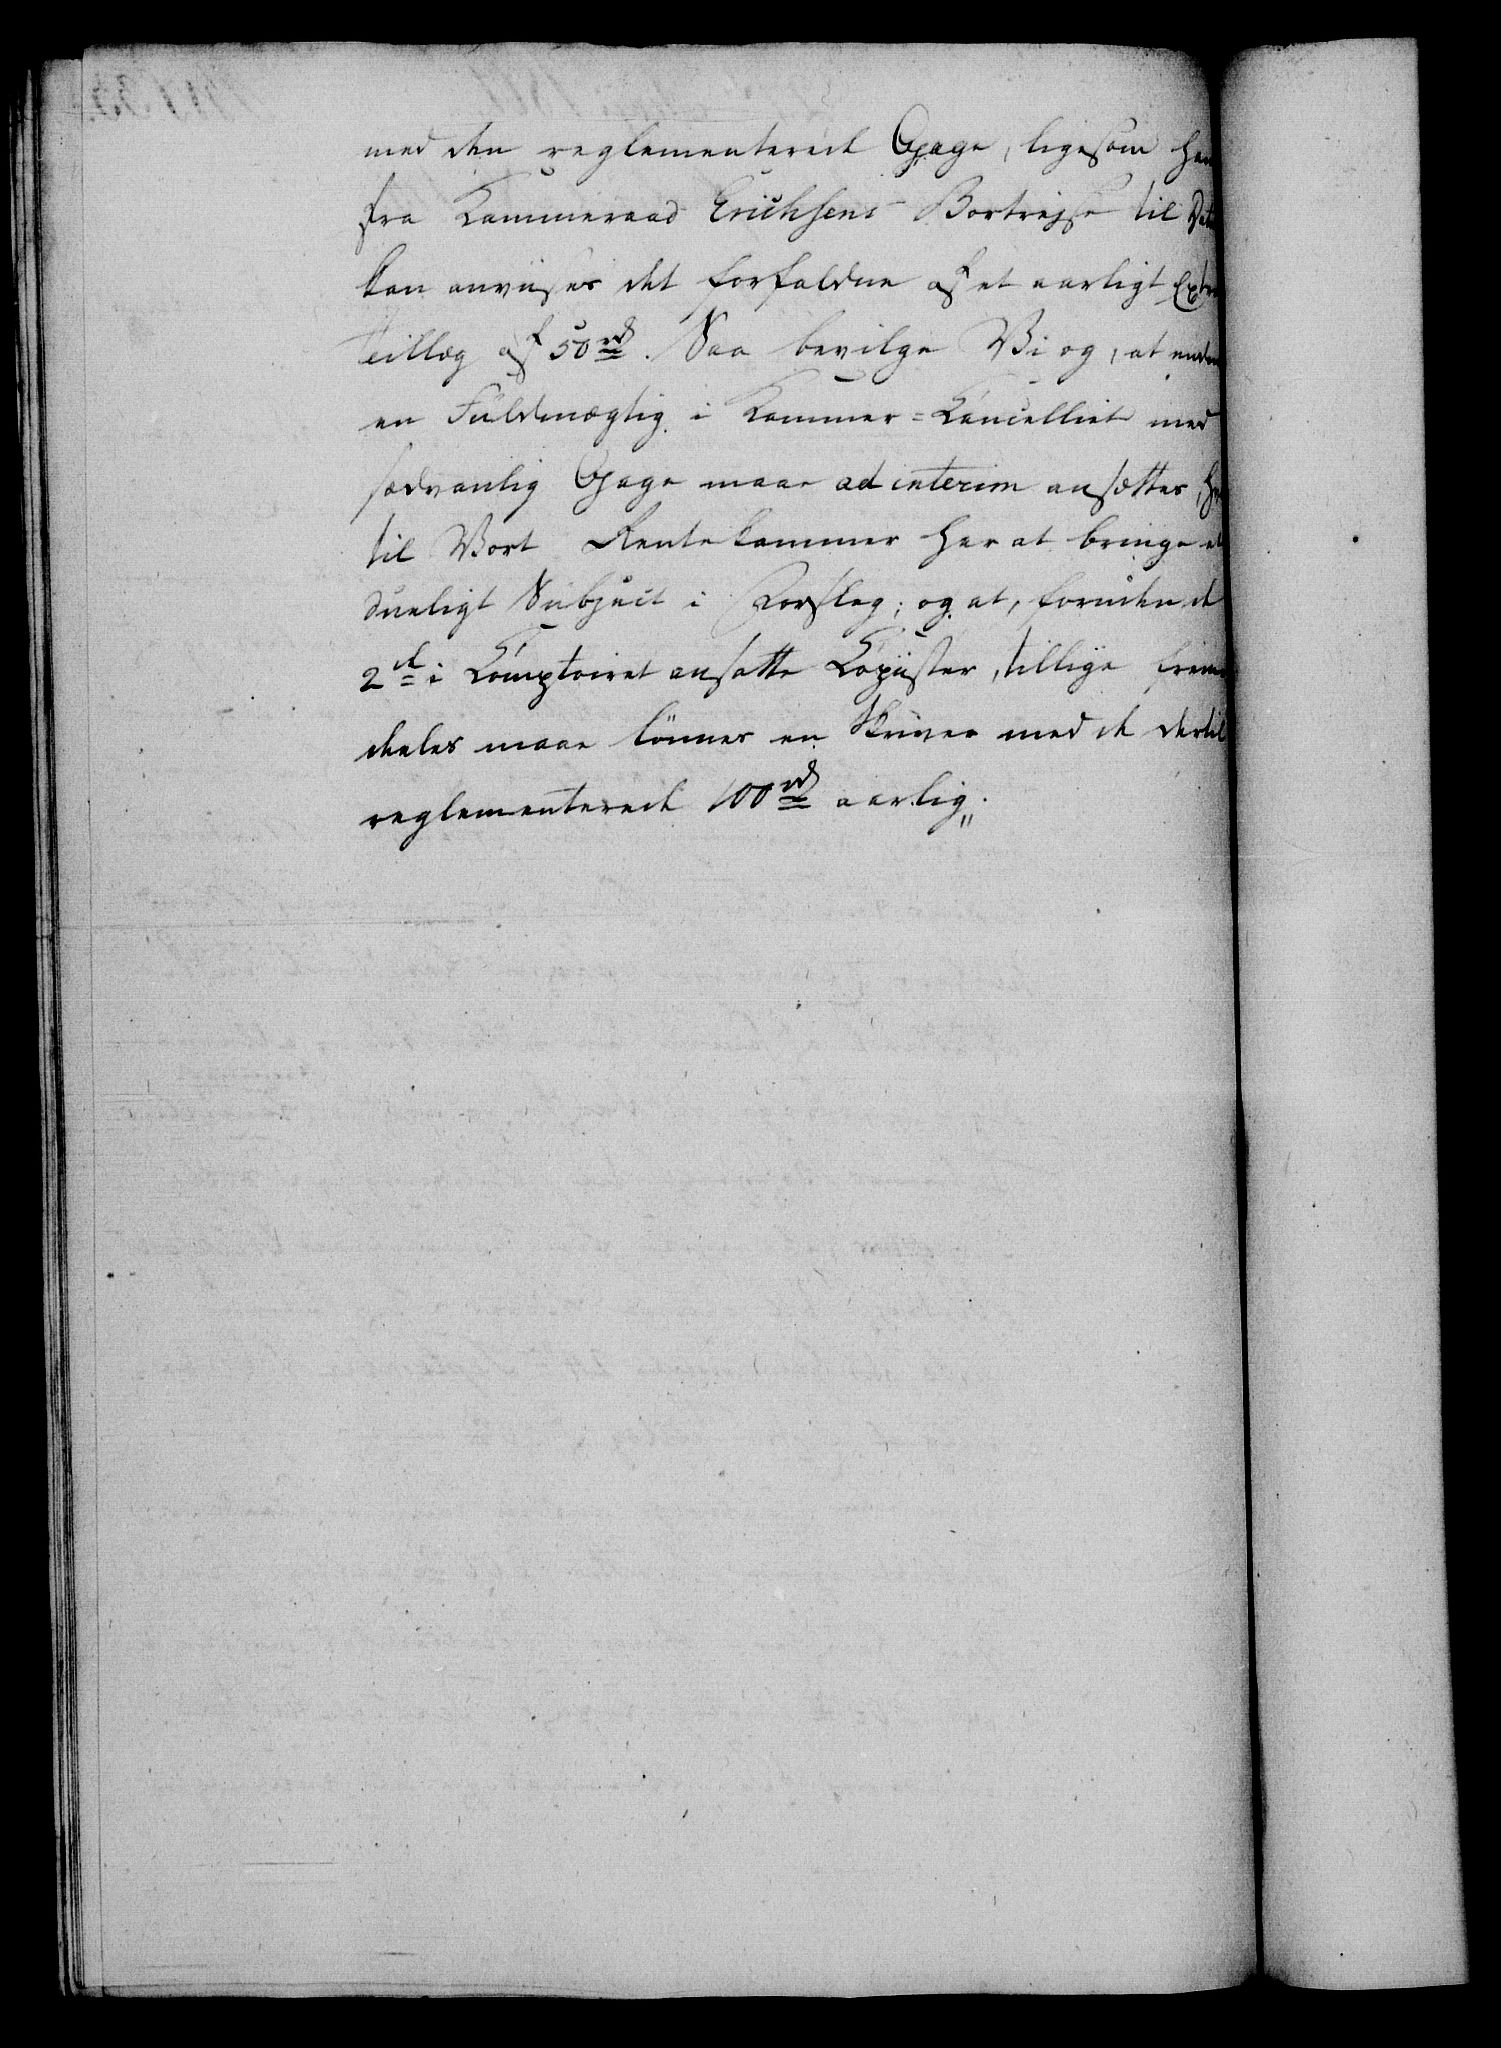 med den reglementerede Gage, ligesom ham
fra Kammeraad Erichsens Bortrejse til Dato
kan anviises det forfaldne af et aarligt Extra
Tillæg af 50 rd. Saa bevilge Vi og, at endnu
en Fuldmægtig i Kammer=Cancelliet med
sædvanlig Gage maae ad interim ansættes, 
til Vort Rentekammer har at bringe et
dueligt Subject i Forslag; og at, foruden de
2de i Comptoiret ansatte Copiister, tillige frem-
deeles maae lønnes en Skriver med de dertil
reglementerede 100 rd aarlig.